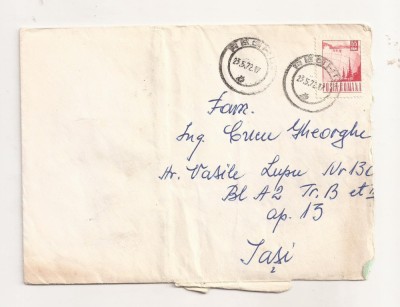 27.5.72.17
27.5.72.17
POSTA ROMANA
Fam.
Ing. Crucu Gheorghe
Str. Vasile Lupu Nr 130
Bl A2 Tr. B et
ap. 13
Iași